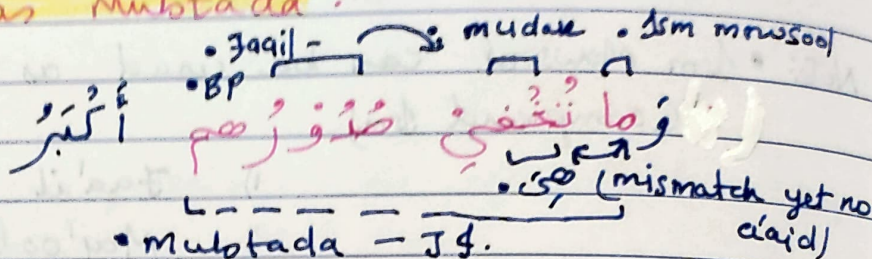 as Mubtada.
• Faail - mudaре • Ism mowsool
• BP
وَ ما تُخْفِيْ صُدُوْرُهم أَكْبَرُ
• هِيَ (mismatch yet no a'aid)
• mubtada - JF.